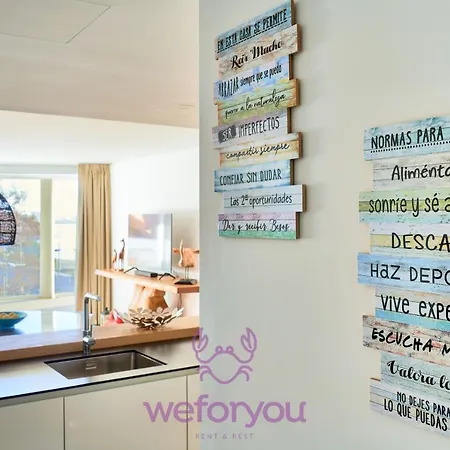 EN ESTA CASA SE PERMITE
Reír Mucho
ABRAZAR siempre que se pueda
a la naturaleza
SER IMPERFECTOS
compartir siempre
CONFIAR SIN DUDAR
Las 2as oportunidades
Dar y recibir Besos
NORMAS PARA
Aliménta
sonríe y sé a
DESCA
HAZ DEPO
VIVE EXPE
ESCUCHA M
Valora lo
NO DEJES PARA
LO QUE PUEDAS
weforyou
RENT & REST